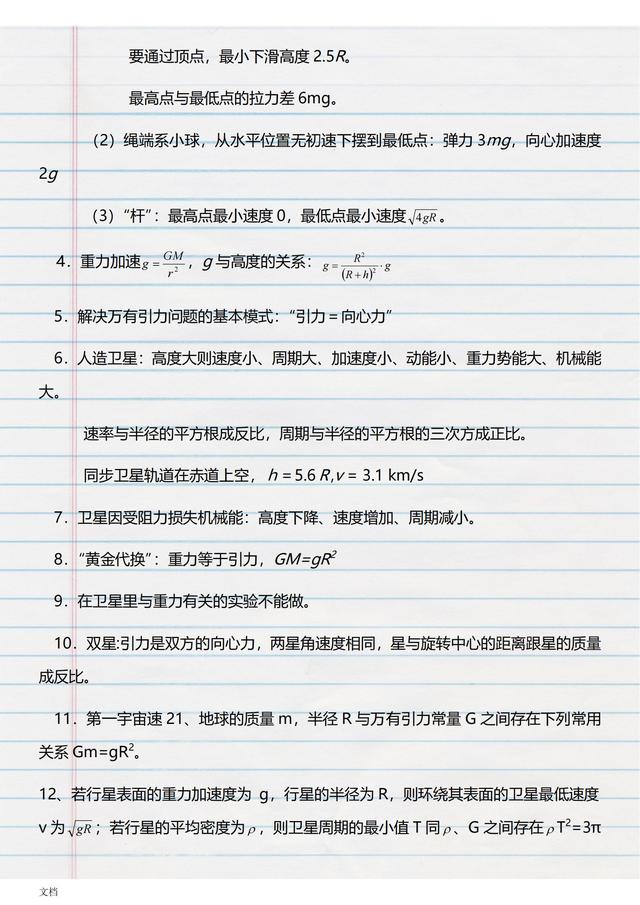 要通过顶点，最小下滑高度 2.5R。
最高点与最低点的拉力差 6mg。
（2）绳端系小球，从水平位置无初速下摆到最低点：弹力 3mg，向心加速度
2g
（3）“杆”：最高点最小速度 0，最低点最小速度√4gR。
4．重力加速g=GM/r²，g 与高度的关系：g=R²/(R+h)²·g
5．解决万有引力问题的基本模式：“引力＝向心力”
6．人造卫星：高度大则速度小、周期大、加速度小、动能小、重力势能大、机械能
大。
速率与半径的平方根成反比，周期与半径的平方根的三次方成正比。
同步卫星轨道在赤道上空，h＝5.6 R,v = 3.1 km/s
7．卫星因受阻力损失机械能：高度下降、速度增加、周期减小。
8．“黄金代换”：重力等于引力，GM=gR²
9．在卫星里与重力有关的实验不能做。
10．双星:引力是双方的向心力，两星角速度相同，星与旋转中心的距离跟星的质量
成反比。
11．第一宇宙速 21、地球的质量 m，半径 R 与万有引力常量 G 之间存在下列常用
关系 Gm=gR²。
12、若行星表面的重力加速度为 g，行星的半径为 R，则环绕其表面的卫星最低速度
v 为√gR；若行星的平均密度为ρ，则卫星周期的最小值 T 同ρ、G 之间存在ρT²=3π
文档